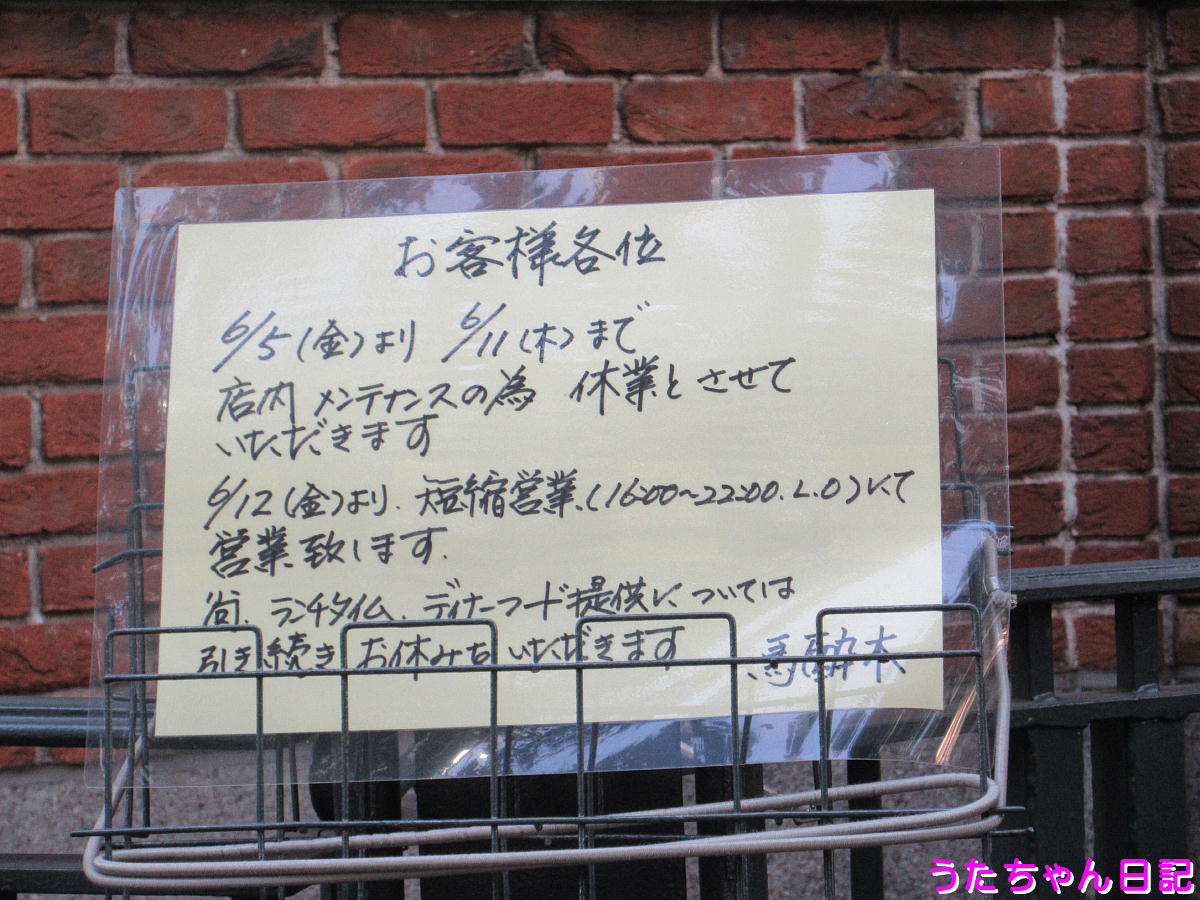 お客様各位
6/5(金)より 6/11(木)まで
店内メンテナンスの為 休業とさせて
いただきます
6/12(金)より、短縮営業、(16:00~22:00.L.O)にて
営業致します.
尚、ランチタイム、ディナーフード提供については
引き続きお休みをいただきます
馬酔木
うたちゃん日記